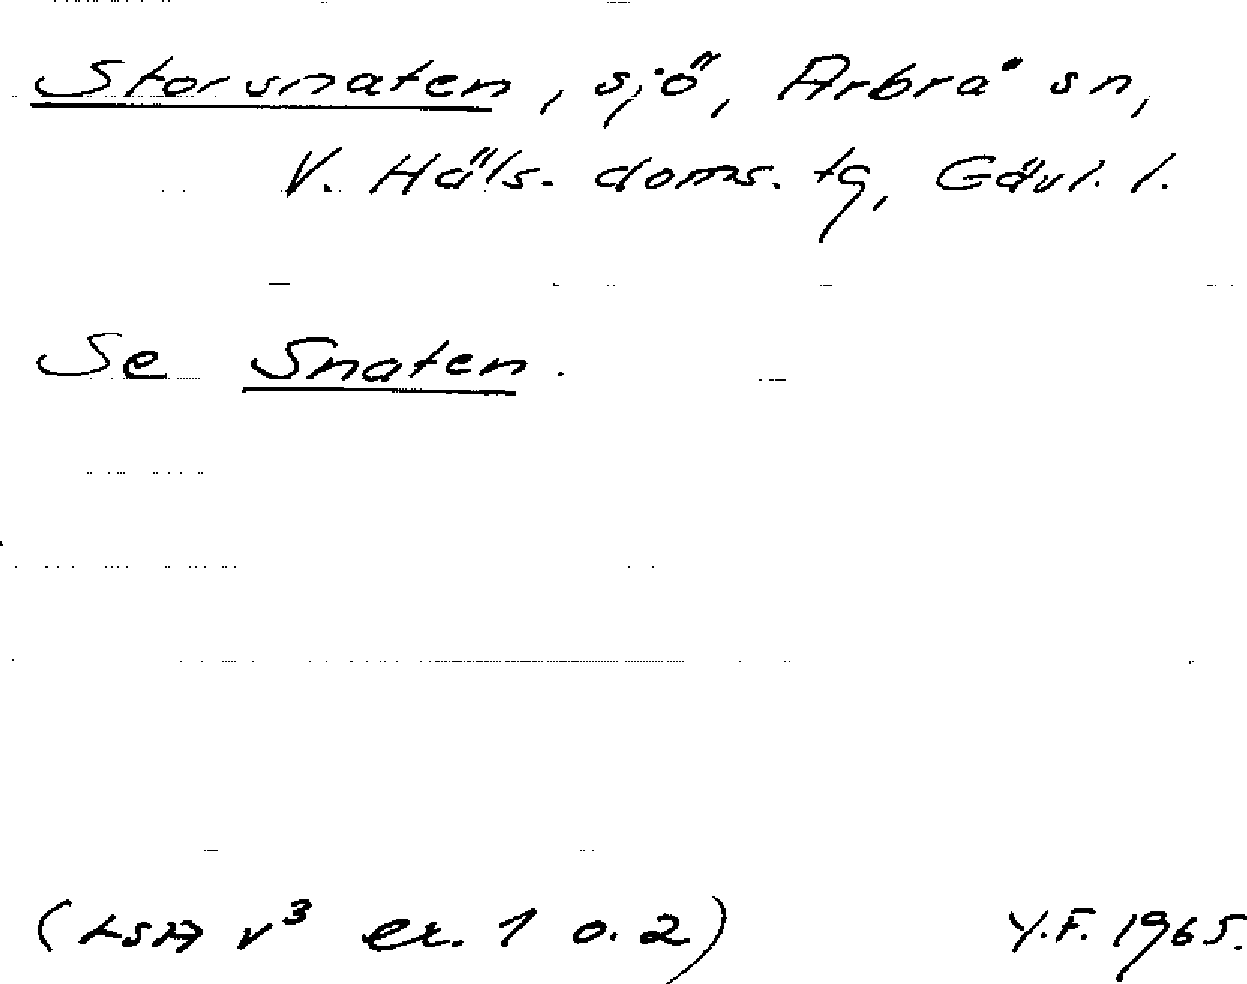 Storsnaten, sjö, Arbrå sn,
V. Häls. doms. tg, Gävl. l.
Se Snaten.
(LSA v³ ex. 1 o. 2) Y.F. 1965.